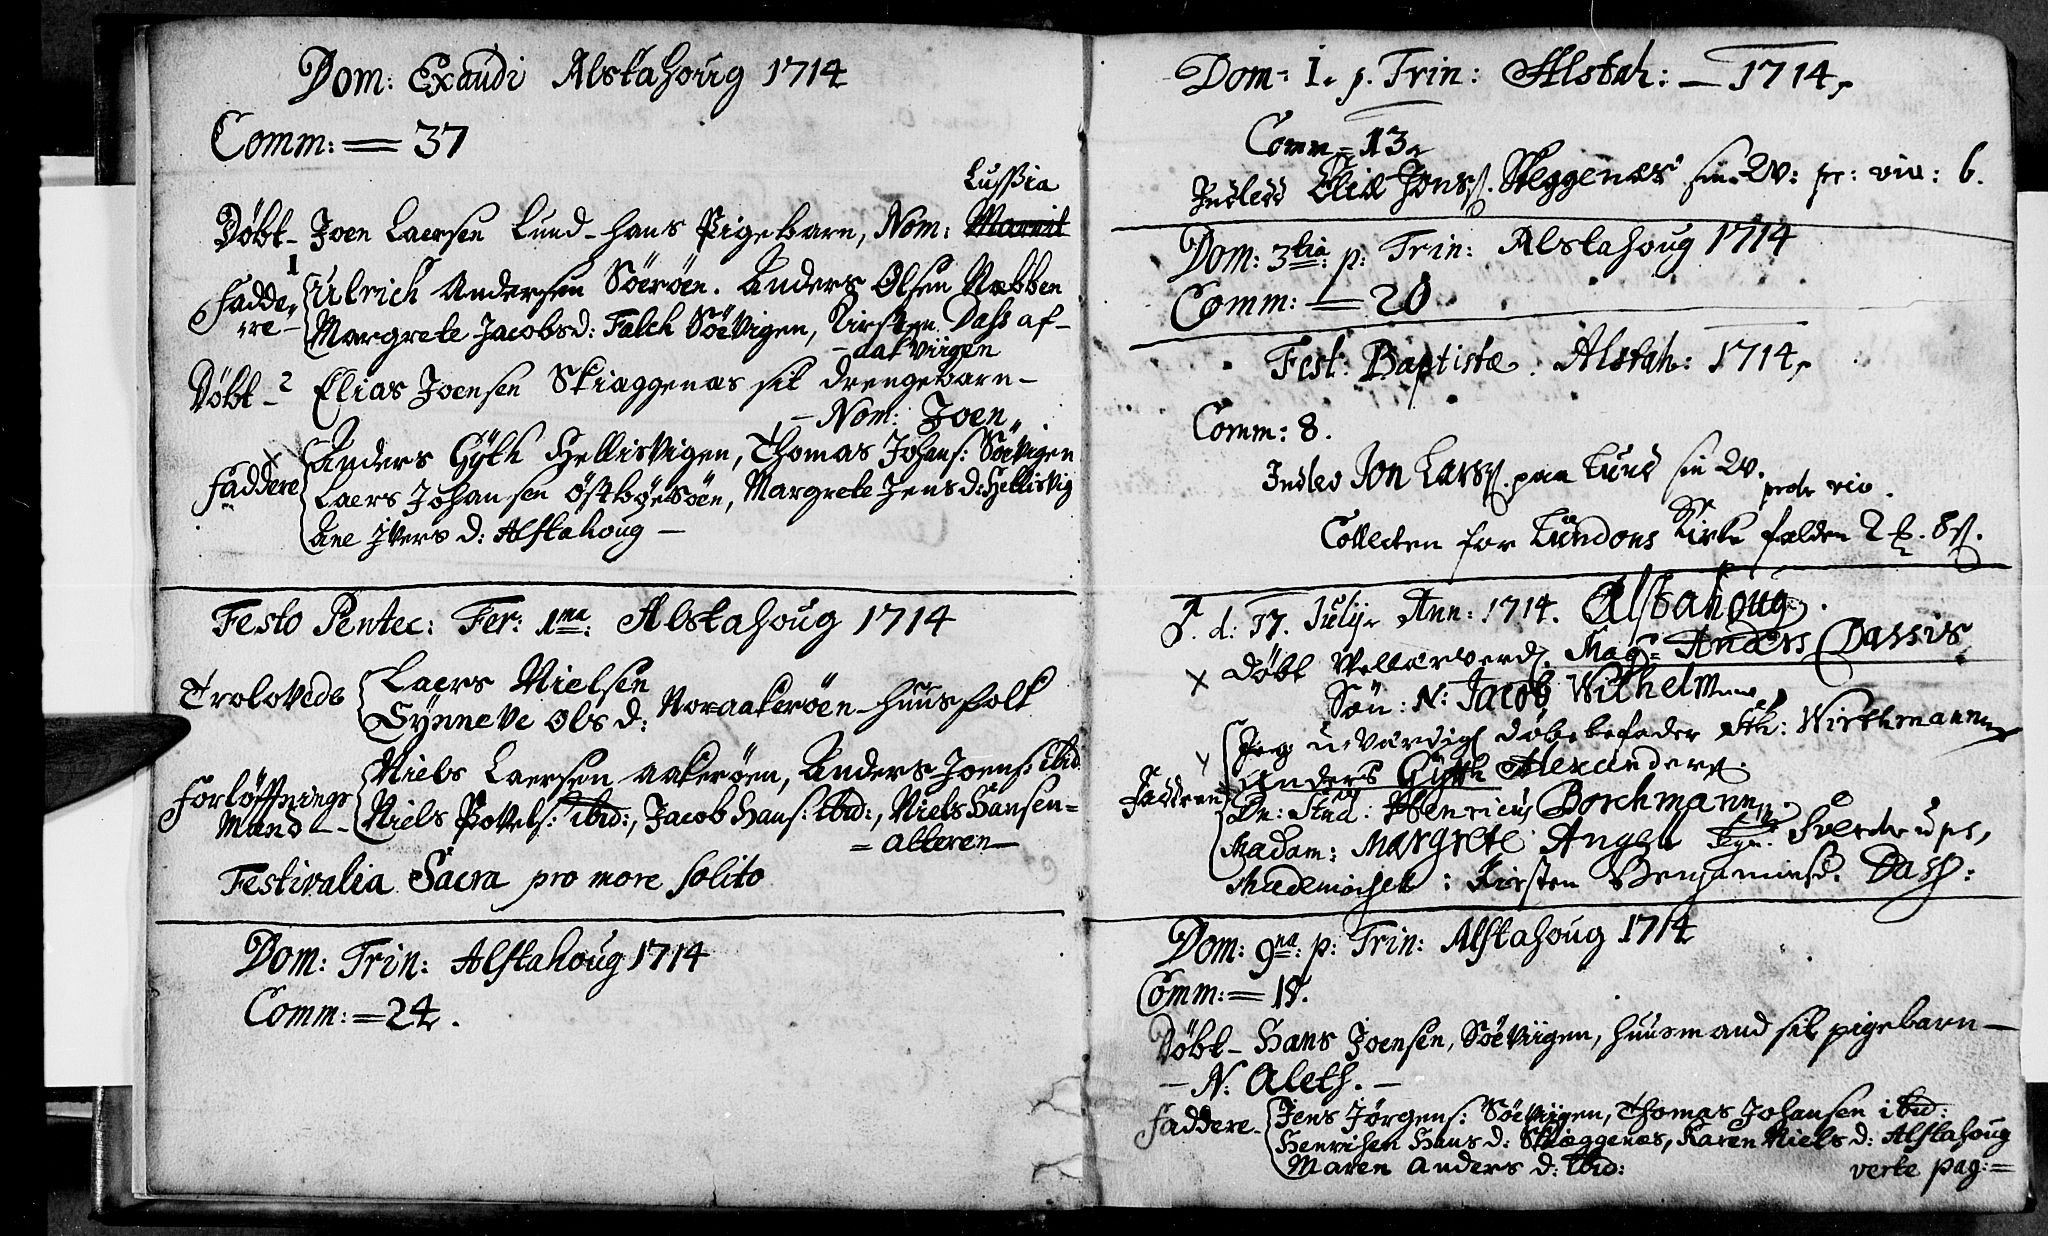 Dom: Exaudi Alstahoug 1714
Comm: = 37
Lussia
Døbt - Joen Laersen Lund - hans Pigebarn, Nom: Marrit
1
Fadde- Ulrich Andersen Söeröen. Anders Olsen Nebben
re - Margrete Jacobsd: Falch Söevigen, Kirsten Dass af -
- aakviigen
Døbt - 2 Elias Joensen Skiæggenæs sit drengebarn -
- Nom: Joen
Anders Gÿth Hellisvigen, Thomas Johans: Söevigen
Faddere Laers Johansen Östbøesöen, Margrete Jensd: Hellisvig
Ane Ivers d: Alstahoug -
Festo Pentec: Fer: 1ma: Alstahoug 1714
Trolovede Laers Nielsen
Sÿnneve Ols d: Noraakeröen - Huusfolk
Forlöffnings Niels Laersen aakeröen, Anders Joens: ibid
Mænd - Niels Povels: ibid:, Jacob Hans: ibid:, Niels Hansen =
= alteren -
Festivalia Sacra pro more solito
Dom: Trin: Alstahoug 1714
Comm: = 24.
Dom: 1. p. Trin: Alstah: - 1714.
Comm = 13.
Indledd Eliæ Jonss. Skeggenæs sin Qv: pr: viv: b.
Dom: 3tia: p: Trin: Alstahoug 1714
Comm: = 20
Fest: Baptistæ. Alstah: 1714.
Comm: 8.
Indled Jon Larss. paa Lund sin Qv.
viv.
Collecten for Kirke falden 2 8 s.
d: 17. Julij Ann: 1714. Alstahoug.
x Døbt Velærverd. Mag: Anders Dassis
Søn: N: Jacob Wilhelm
Jeg uværdig døbebefader Wirthmann
Faddren Anders Gÿth Alexanders.
Dn: Stud: Henricus Borchmann
Madam: Margrete Angel
Mademoisel: Kirsten Benjaminsd. Dass:
Dom: 9na: p: Trin: Alstahoug 1714
Comm: = 18.
Døbt - Hans Joensen, Söeviigen, huusmand sit pigebarn -
- N: Aleth. -
Faddere - Jens Jörgens: Söeviigen, Thomas Johansen ibid:
Henrichen Hans d: Skiæggenæs, Karen Niels d: Alstahoug
Maren Anders d: ibid:
verte pag: =